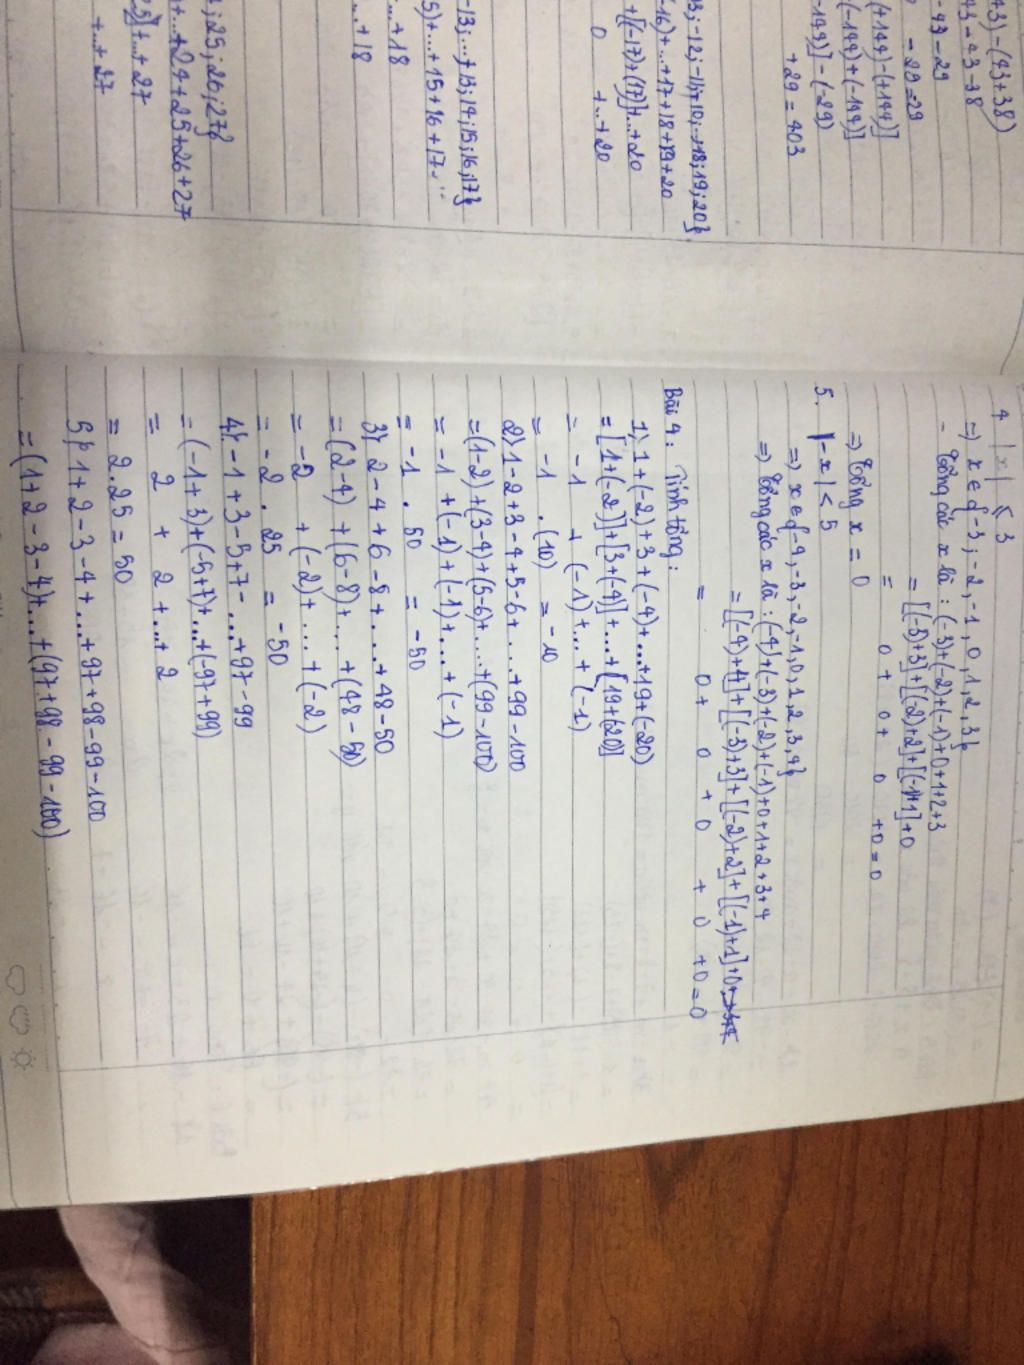 43) - (43+38)
43 - 43 - 38
- 43 - 29
- 28 = 29
(+144) - (+144)]
(-199) + (-199)]
-199)] - (-29)
+ 29 = 403
13; -12; -11; 10; 18; 19; 20}
-16) + ... + 17 + 18 + 19 + 20
+ [(-17) + (17)] + ... + 20
0 + ... + 20
-13; ... + 13; 14; 15; 16; 17}
5) + ... + 15 + 16 + 17
... + 18
... + 18
; 25; 26; 27}
) + ... + 24 + 25 + 26 + 27
25] + ... + 27
+ ... + 27
4 |x| ≤ 3
=) x ∈ {-3; -2, -1, 0, 1, 2, 3}
- Tổng các x là : (-3)+(-2)+(-1)+0+1+2+3
= [(-3)+3]+[(-2)+2]+[(-1)+1]+0
= 0 + 0 + 0 + 0 = 0
=) Tổng x = 0
5. |-x| < 5
=) x ∈ {-4, -3, -2, -1, 0, 1, 2, 3, 4}
=) Tổng các x là : (-4)+(-3)+(-2)+(-1)+0+1+2+3+4
= [(-4)+4]+[(-3)+3]+[(-2)+2]+[(-1)+1]+0
= 0 + 0 + 0 + 0 + 0 = 0
Bài 4: Tính tổng:
1) 1+(-2)+3+(-4)+...+19+(-20)
= [1+(-2)]+[3+(-4)]+...+[19+(20)]
= -1 + (-1)+...+(-1)
= -1 . (10) = -10
2) 1-2+3-4+5-6+...+99-100
= (1-2)+(3-4)+(5-6)+...+(99-100)
= -1 + (-1)+(-1)+...+(-1)
= -1 . 50 = -50
3) 2-4+6-8+...+48-50
= (2-4) + (6-8)+...+(48-50)
= -2 + (-2)+...+(-2)
= -2 . 25 = -50
4) -1+3-5+7-...+97-99
= (-1+3)+(-5+7)+...+(-97+99)
= 2 + 2 +...+ 2
= 2.25 = 50
5) 1+2-3-4+...+97+98-99-100
= (1+2-3-4)+...+(97+98-99-100)